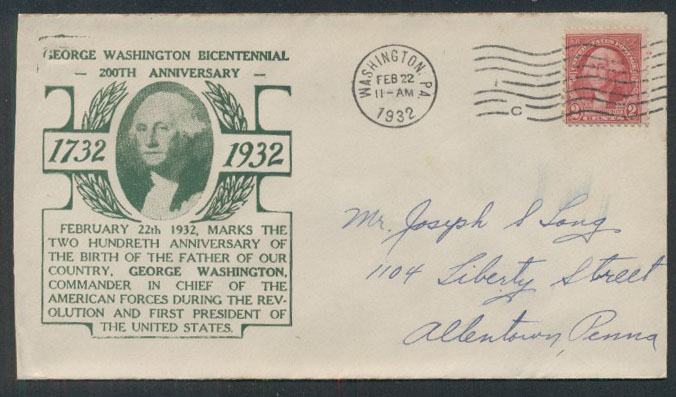 GEORGE WASHINGTON BICENTENNIAL
— 200TH ANNIVERSARY —
1732 1932
FEBRUARY 22th 1932, MARKS THE
TWO HUNDRETH ANNIVERSARY OF
THE BIRTH OF THE FATHER OF OUR
COUNTRY, GEORGE WASHINGTON,
COMMANDER IN CHIEF OF THE
AMERICAN FORCES DURING THE REV-
OLUTION AND FIRST PRESIDENT OF
THE UNITED STATES.
WASHINGTON, PA.
FEB 22
11-AM
1932
C
2 2
CENTS
Mr. Joseph S Long
1104 Liberty Street
Allentown, Penna